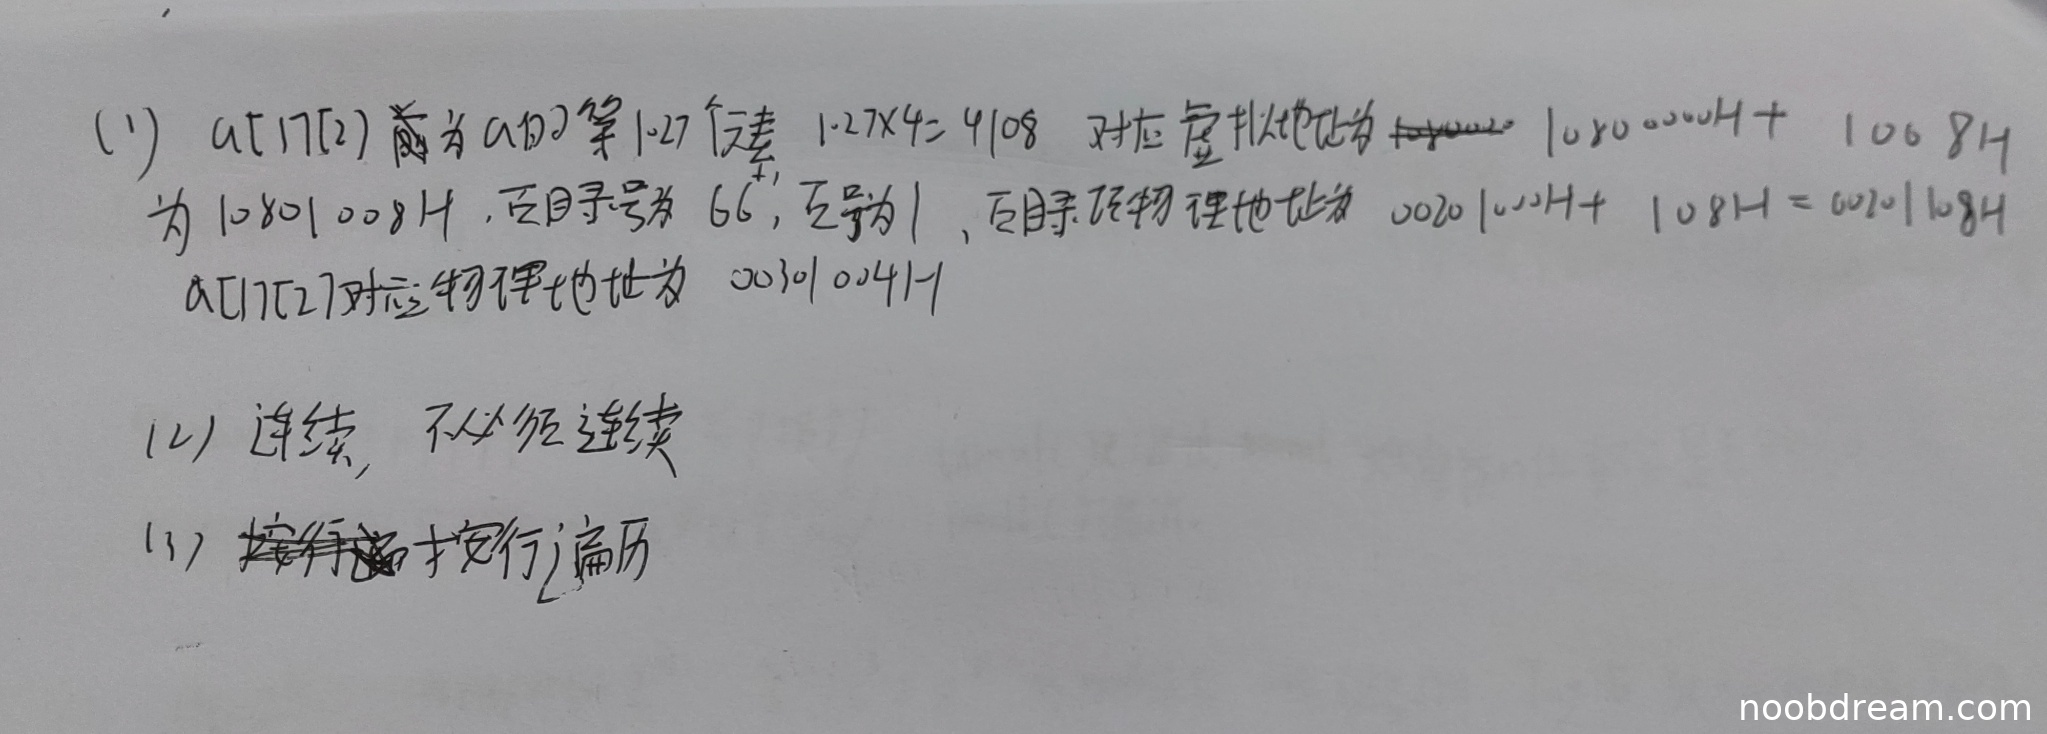 (1) a[1][2] 为a的第1027个元素, 1027×4=4108 对应虚拟地址为 10800000H+ 1008H
为 10801008H, 页目录号为 66, 页号为1、页目录项物理地址为 00201000H+ 108H=00201108H
a[1][2]对应物理地址为 00301004H
(2) 连续, 不必须连续
(3) 按行遍历
noobdream.com